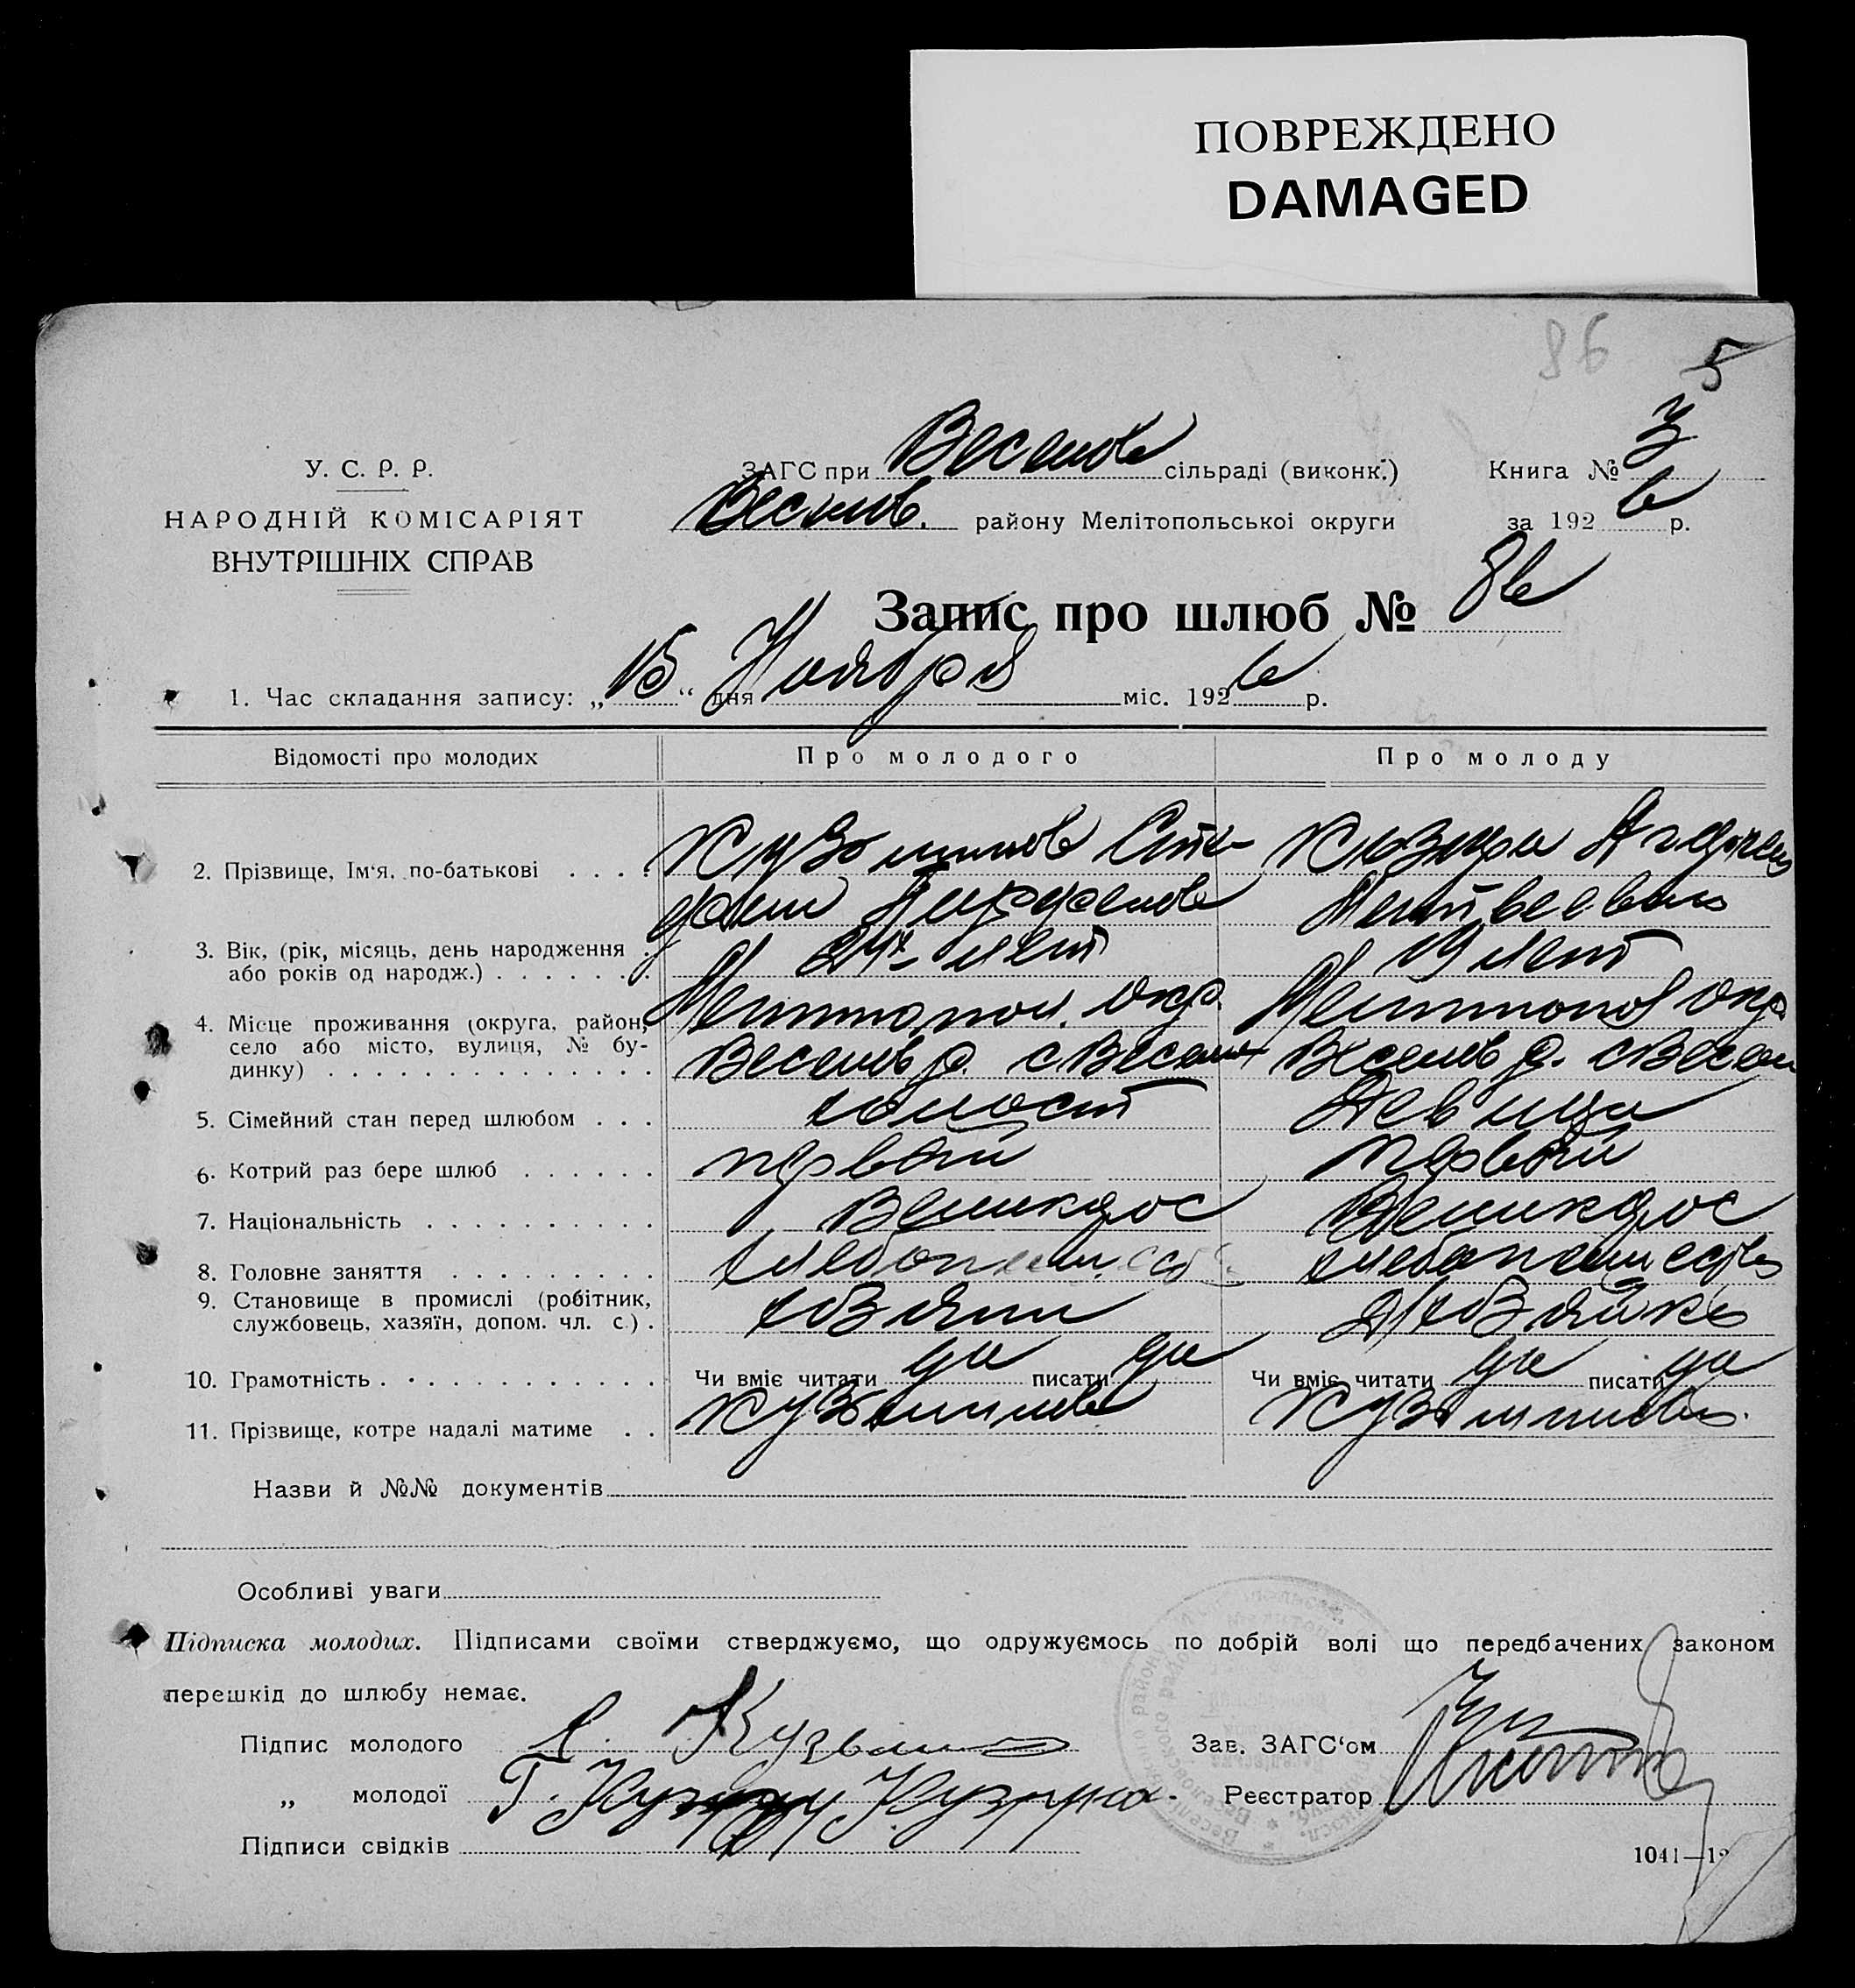 ПОВРЕЖДЕНО
DAMAGED
86 5
У. С. Р. Р.
НАРОДНІЙ КОМІСАРІЯТ
ВНУТРІШНІХ СПРАВ
ЗАГС при Веселов сільраді (виконк.) Книга № 3
Веселов. району Мелітопольської округи за 1926 р.
Запис про шлюб № 86
1. Час складання запису: „15“ дня Ноября міс. 1926 р.
Відомості про молодих Про молодого Про молоду
2. Прізвище, Ім'я, по-батькові . . . .
Кузьминов
Матвеевна
3. Вік, (рік, місяць, день народження . .
або років од народж.) . . . . . . .
лет 19 лет
4. Місце проживання (округа, район,
село або місто, вулиця, № бу-
динку) . . . . . . . . . . . . . .
Мелитопол. окр. Мелитопол окр.
Веселов р. с Весел Веселов р. с Весел
5. Сімейний стан перед шлюбом . . . холост Девица
6. Котрий раз бере шлюб . . . . . . первый первый
7. Національність . . . . . . . . . . Великорос Великорос
8. Головне заняття . . . . . . . . .
9. Становище в промислі (робітник,
службовець, хазяїн, допом. чл. с.) .
хозяин хозяйка
10. Грамотність . . . . . . . . . . . . Чи вміє читати да писати да Чи вміє читати да писати да
11. Прізвище, котре надалі матиме . . Кузьминов Кузьминова.
Назви й №№ документів
Особливі уваги
Підписка молодих. Підписами своїми стверджуємо, що одружуємось по добрій волі що передбачених законом
перешкід до шлюбу немає.
Підпис молодого С. Кузьмин Зав. ЗАГС'ом
„ молодої Реєстратор
Підписи свідків
1041—1